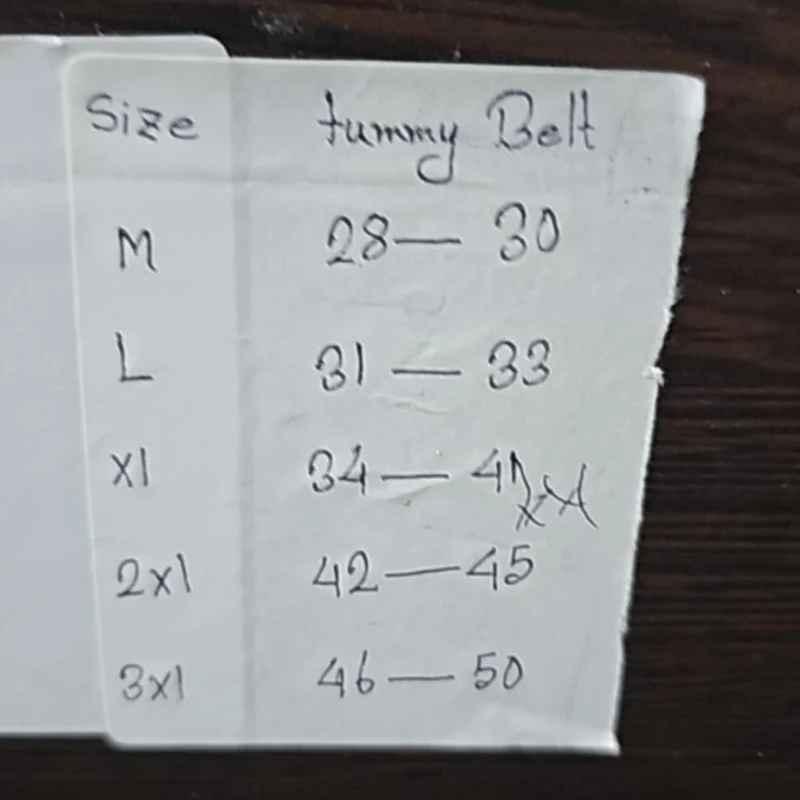 Size tummy Belt
M 28— 30
L 31 — 33
xl 34 — 41
2xl 42—45
3xl 46 — 50